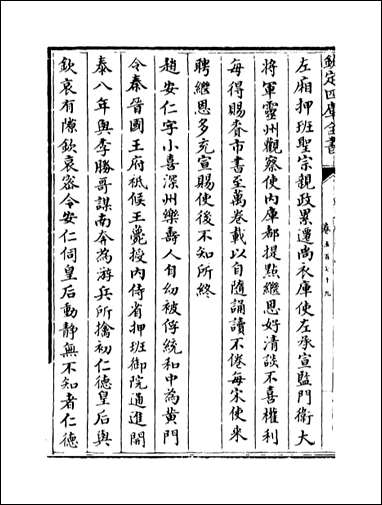 欽定四庫全書
卷五百七十九
左廂押班聖宗親政累遷尚衣庫使左承宣監門衛大
將軍靈州觀察使内庫都提點繼恩好清談不喜權利
每得賜賚市書至萬卷載以自隨誦讀不倦每宋使來
聘繼恩多充宣賜使後不知所終
趙安仁字小喜深州樂壽人自幼被俘統和中為黄門
令秦晉國王府祗候王薨授内侍省押班御院通進開
泰八年與李勝哥謀南奔為游兵所擒初仁德皇后與
欽哀有隙欽哀密令安仁伺皇后動靜無不知者仁德